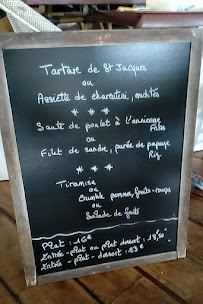 Tartare de St Jacques
ou
Assiette de charcuterie, crudités
* * *
Sauté de poulet à l'ancienne
Frites
ou
Filet de sandre, purée de panais
Riz
* * *
Tiramisu
ou
Crumble pommes, fruits rouges
ou
Salade de fruits
Plat : 16€
Entrée - plat ou plat dessert : 19,50
Entrée - plat - dessert : 23€